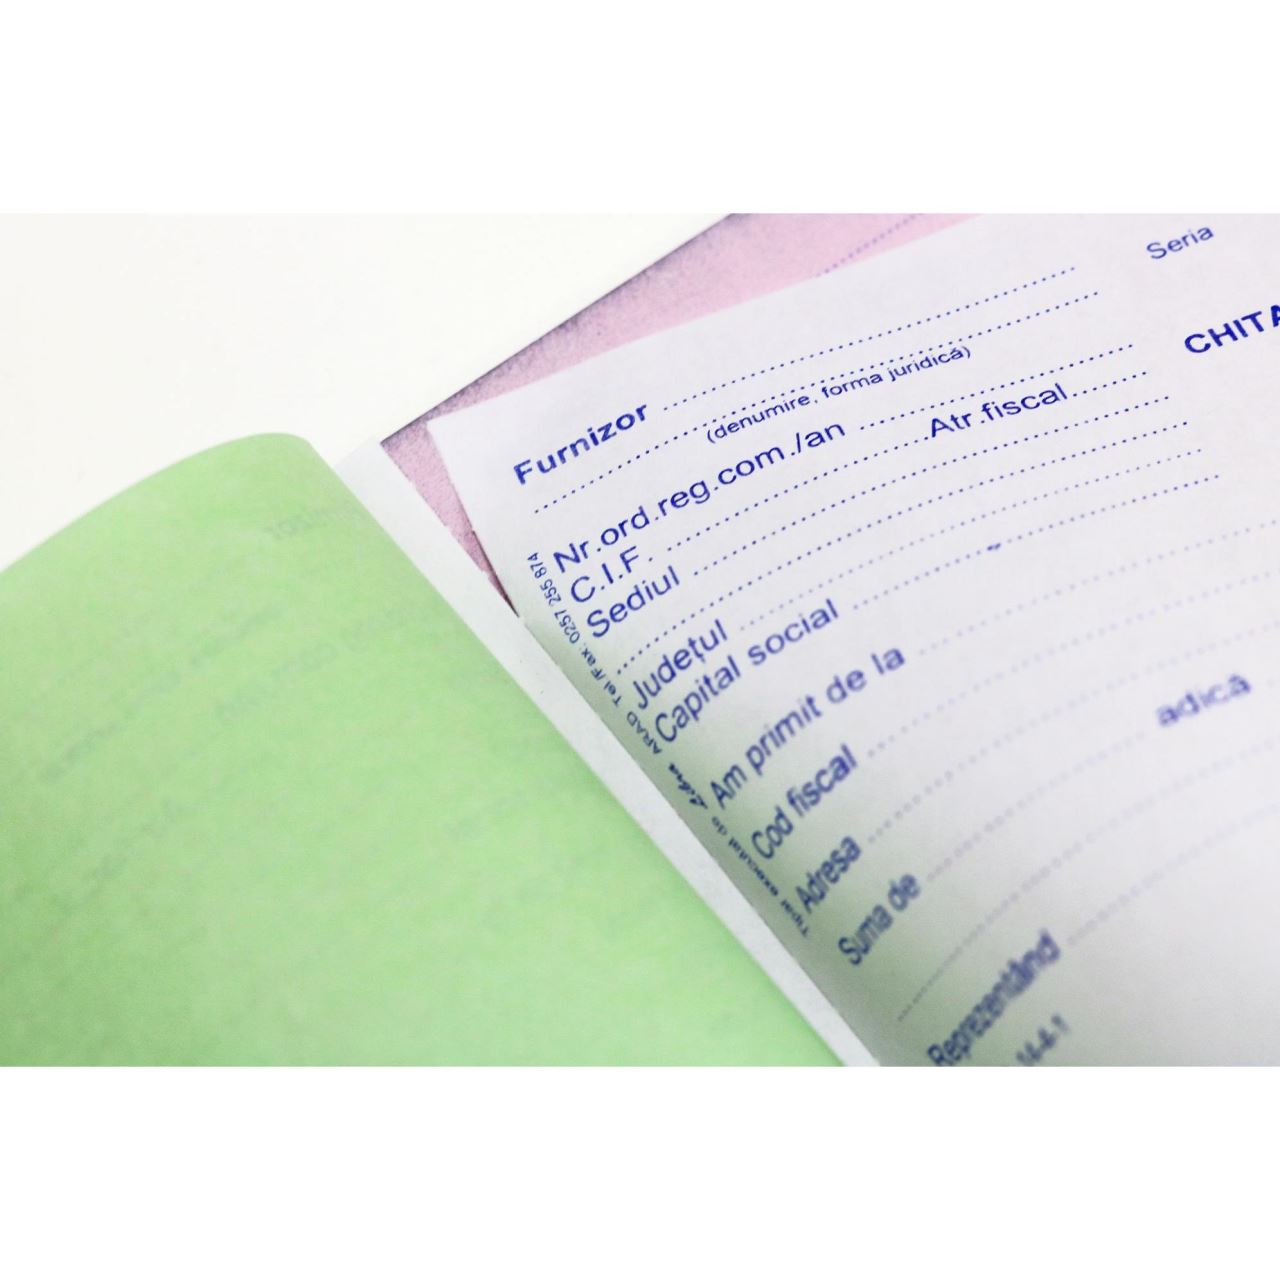 Seria
CHITA
Furnizor
(denumire, forma juridică)
Nr.ord.reg.com./an
Atr.fiscal
C.I.F.
Sediul
Județul
Capital social
Am primit de la
Cod fiscal
Adresa
Suma de
adică
Reprezentând
14-4-1
Tipar executat de Libra ARAD Tel/Fax: 0257 255 874